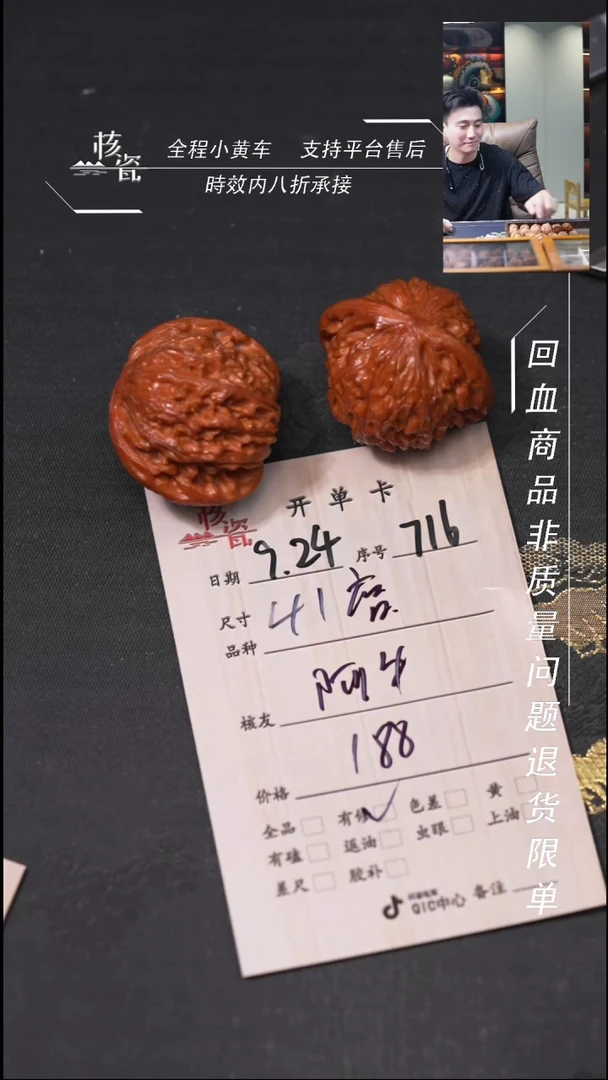 核瓷
全程小黄车 支持平台售后
時效内八折承接
回血商品非质量问题退货限单
核瓷
开单卡
日期 9.24 序号 716
尺寸 41
品种
核友 阿牛
价格 188
全品 有修 ✓ 色差 黄
有磕 返油 虫眼 上油
差尺 胶补
QIC中心 备注